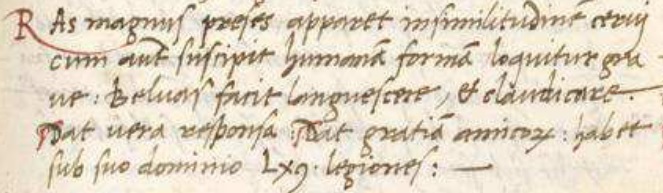 RAs magnus preses apparet in similitudinē cervi
cum aūt suscipit humanā formā loquitur gra
ve: Beluas facit languescere, & claudicare.
Dat vera responsa: Dat gratiā amicoꝝ: habet
sub suo dominio Lx9. legiones: —